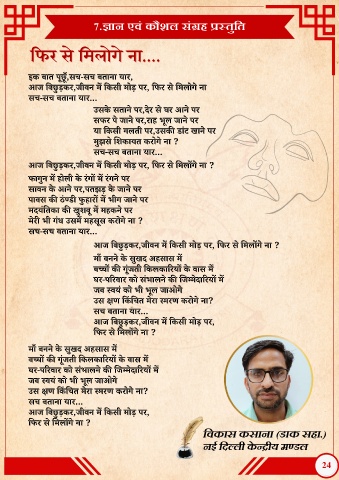 7.ज्ञान एवं कौशल संग्रह प्रस्तुति
फिर से मिलोगे ना....
इक बात पूछूँ,सच-सच बताना यार,
आज बिछुड़कर,जीवन में किसी मोड़ पर, फिर से मिलोगे ना
सच-सच बताना यार...
उसके सताने पर,देर से घर आने पर
सफर पे जाने पर,राह भूल जाने पर
या किसी गलती पर,उसकी डांट खाने पर
मुझसे शिकायत करोगे ना ?
सच-सच बताना यार...
आज बिछुड़कर,जीवन में किसी मोड़ पर, फिर से मिलोगे ना ?
फागुन में होली के रंगों में रंगने पर
सावन के आने पर,पतझड़ के जाने पर
पावस की ठंण्डी फुहारों में भीग जाने पर
मदयंतिका की खुशबू में महकने पर
मेरी भी गंध उसमें महसूस करोगे ना ?
सच-सच बताना यार...
आज बिछुड़कर,जीवन में किसी मोड़ पर, फिर से मिलोगे ना ?
माँ बनने के सुखद अहसास में
बच्चों की गूंजती किलकारियों के वास में
घर-परिवार को संभालने की जिम्मेदारियों में
जब स्वयं को भी भूल जाओगे
उस क्षण किंचित मेरा स्मरण करोगे ना?
सच बताना यार...
आज बिछुड़कर,जीवन में किसी मोड़ पर,
फिर से मिलोगे ना ?
माँ बनने के सुखद अहसास में
बच्चों की गूंजती किलकारियों के वास में
घर-परिवार को संभालने की जिम्मेदारियों में
जब स्वयं को भी भूल जाओगे
उस क्षण किंचित मेरा स्मरण करोगे ना?
सच बताना यार...
आज बिछुड़कर,जीवन में किसी मोड़ पर,
फिर से मिलोगे ना ?
विकास कसाना (डाक सहा.)
नई दिल्ली केन्द्रीय मण्डल
24